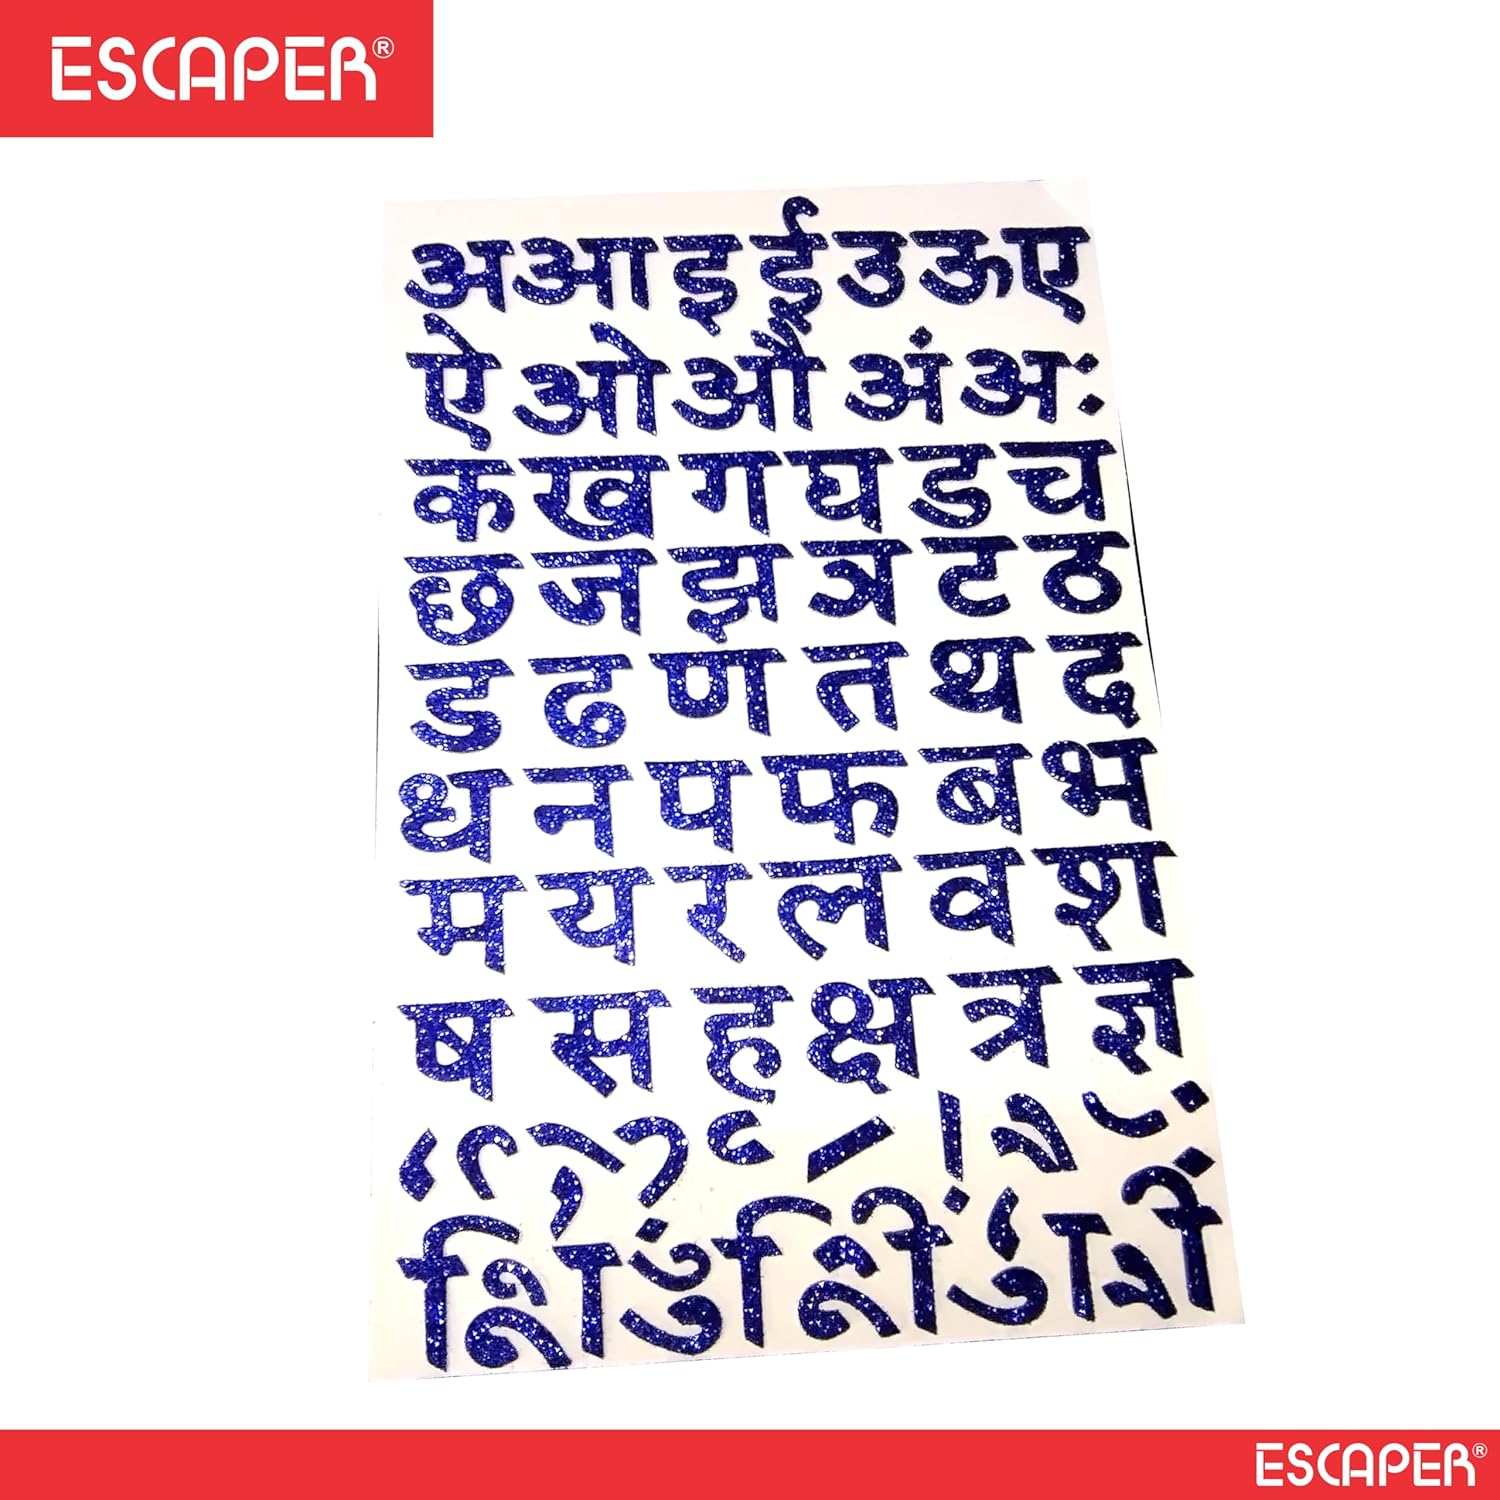 ESCAPER®
अ आ इ ई उ ऊ ए
ऐ ओ औ अं अः
क ख ग घ ड च
छ ज झ त्र ट ठ
ड ढ ण त थ द
ध न प फ ब भ
म य र ल व श
ष स ह क्ष त्र ज्ञ
ESCAPER®